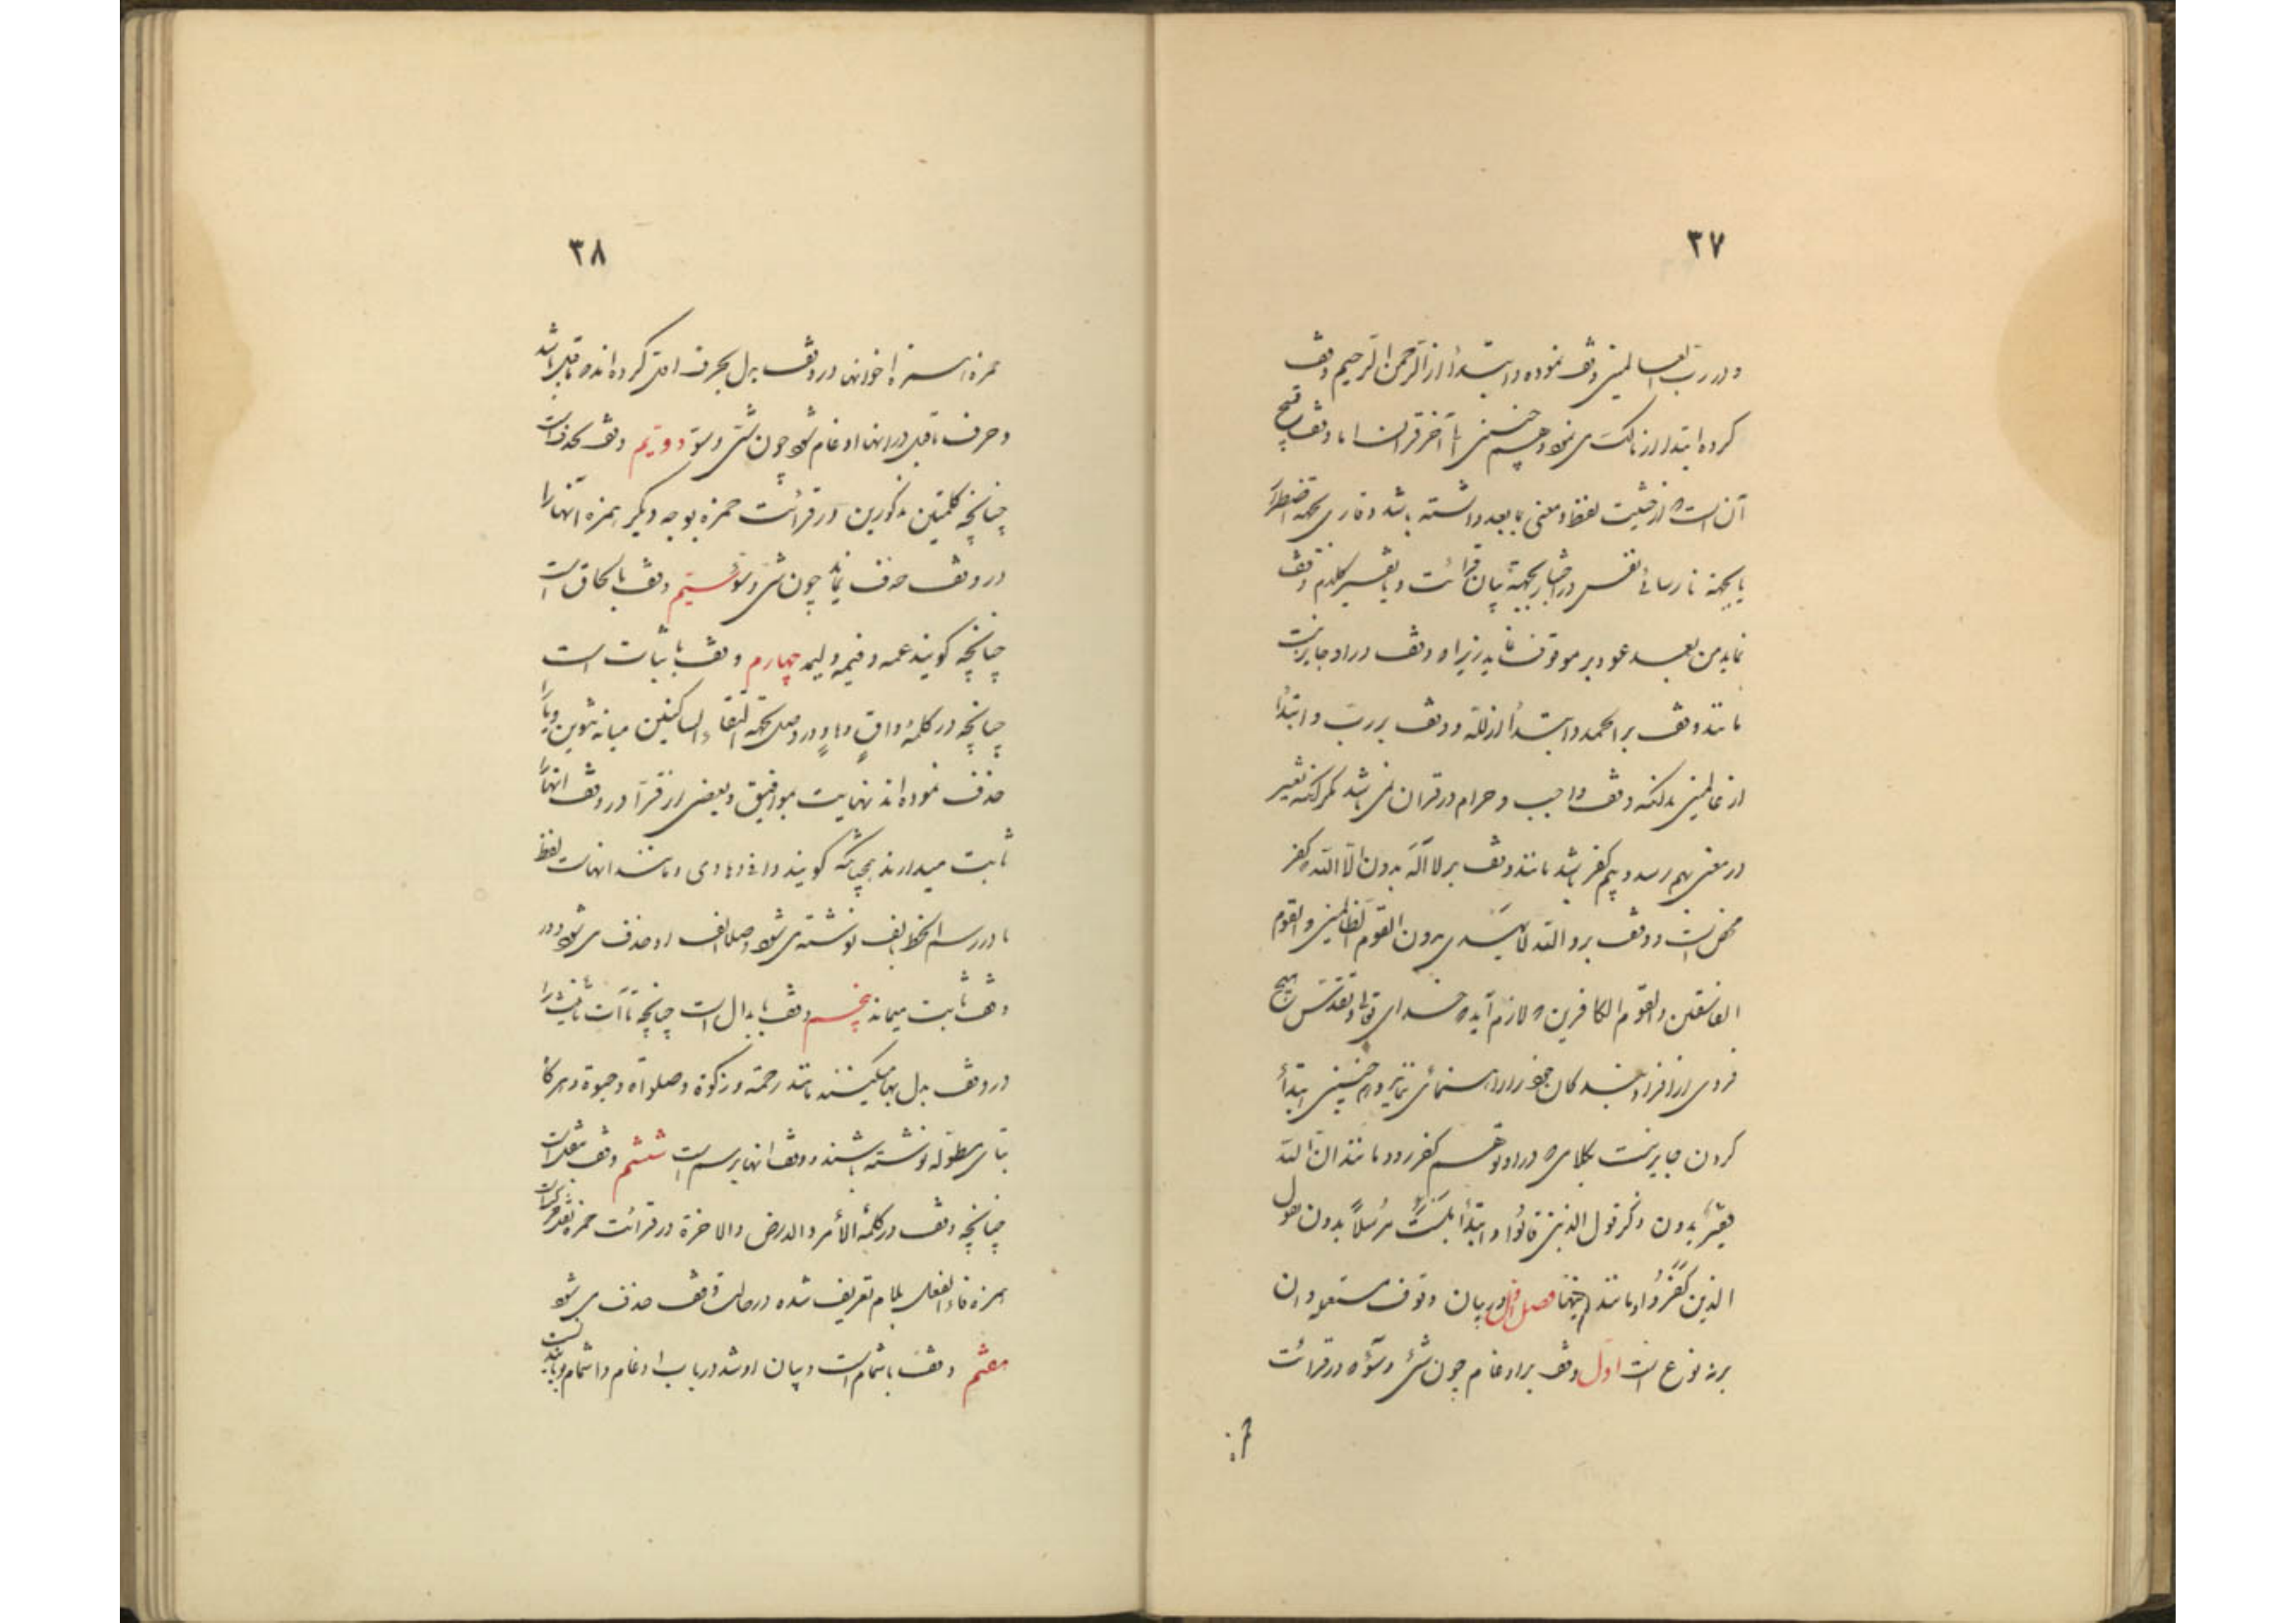 ۳۷
و در رب العالمین وقف نموده و ابتدا از الرحمن الرحیم وقف
کرده ابتدا از مالک می نماید و همچنین تا آخر قرآن اما وقف قبیح
آن است که از حیثیت لفظ و معنی بما بعد داشته باشد و قاری بجهة اضطرار
یا بجهة نارسائی نفس در اختبار بجهة بیان قرائت و یا تفسیر کلام وقف
نماید من بعد عود بر موقوف نماید زیرا که وقف در او جایز نیست
مانند وقف بر الحمد و ابتدأ از لله و وقف بر رب و ابتدا
از عالمین بدانکه وقف واجب و حرام در قرآن نمی باشد مگر آنکه تغییر
در معنی بهم رسد و بیم کفر باشد مانند وقف بر لا اله بدون الا الله که کفر
محض است و وقف بر و الله لا یهدی بدون القوم الظالمین و القوم
الفاسقین و القوم الکافرین که لازم آید که خدای تعالی و تقدس هیچ
فردی از افراد بندگان خود را راهنمائی ننماید و همچنین ابتدأ
کردن جایز نیست بکلامی که در او توهم کفر رود مانند ان الله
فقیر بدون ذکر قول الذین قالوا و ابتدأ بلست مرسلاً بدون یقول
الذین کفروا و مانند اینها فصل اول در بیان وقوف مستعمله و آن
بر نه نوع است اول وقف بر ادغام چون شئ و سوء که در قرائت
حمزه
۳۸
حمزه است همزه اخر انها در وقف بدل بحرف ما قبل کرده اند که یا قبل باشد
و حرف ماقبل در انها ادغام شود چون شیّ و سوّ دویّم وقف بحذف است
چنانچه کلمتین مذکورین در قرائت حمزه بوجه دیگر همزه آنها را
در وقف حذف نماید چون شی و سو سیّم وقف بالحاق است
چنانچه گویند عمه و فیمه و لیمه چهارم وقف باثبات است
چنانچه در کلمه واقٍ و هادٍ در وصل بجهة التقاء الساکنین میانه تنوین و یا را
حذف نموده اند نهایت بوافیق و بعضی از قراء در وقف انها را
ثابت میدارند همچنانکه گویند واقی و هادی و مانند انهاست لفظ
ما در رسم الخط بالف نوشته می شود وصلا الف او حذف می شود و در
وقف ثابت میماند پنجم وقف بابدال است چنانچه تاآت تانیث را
در وقف بدل بها میکنند مانند رحمة و زکوة و صلواة و حیوة و هرگاه
بتای مطوّله نوشته باشند وقف انها برسم است ششم وقف بنقل است
چنانچه وقف در کلمه الأمر و الارض و الاخرة در قرائت حمزه نقل حرکات
همزه فاء الفعل بلام تعریف شده در حالت وقف حذف می شود
هفتم وقف باشمام است و بیان او شد در باب ادغام و اشمام و باید دانست